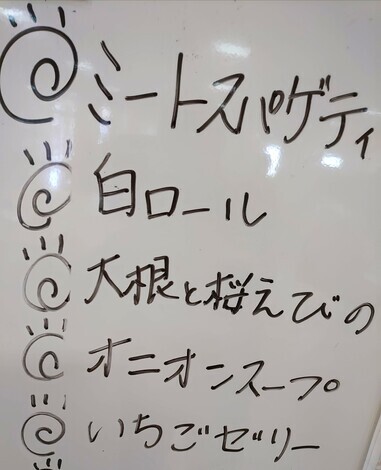 ミートスパゲティ
白ロール
大根と桜えびの
オニオンスープ
いちごゼリー